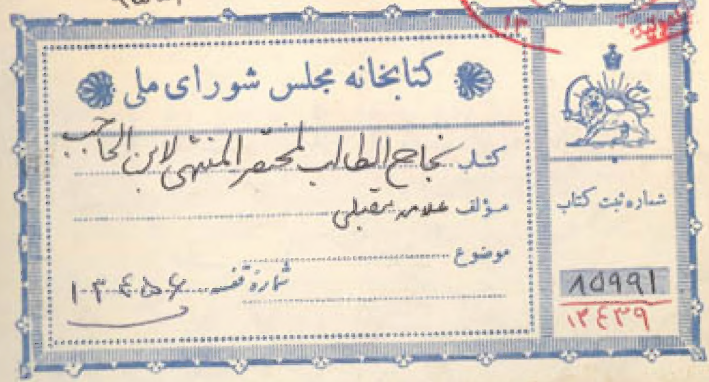 کتابخانه مجلس شورای ملی
کتاب نجاح الطالب لمختصر المنتهی لابن الحاجب
مؤلف علامه مقبلی
موضوع
شمارهٔ قفسه ۱۰۳۴۵۶
شماره ثبت کتاب
۸۵۹۹۱
۱۲۴۳۹